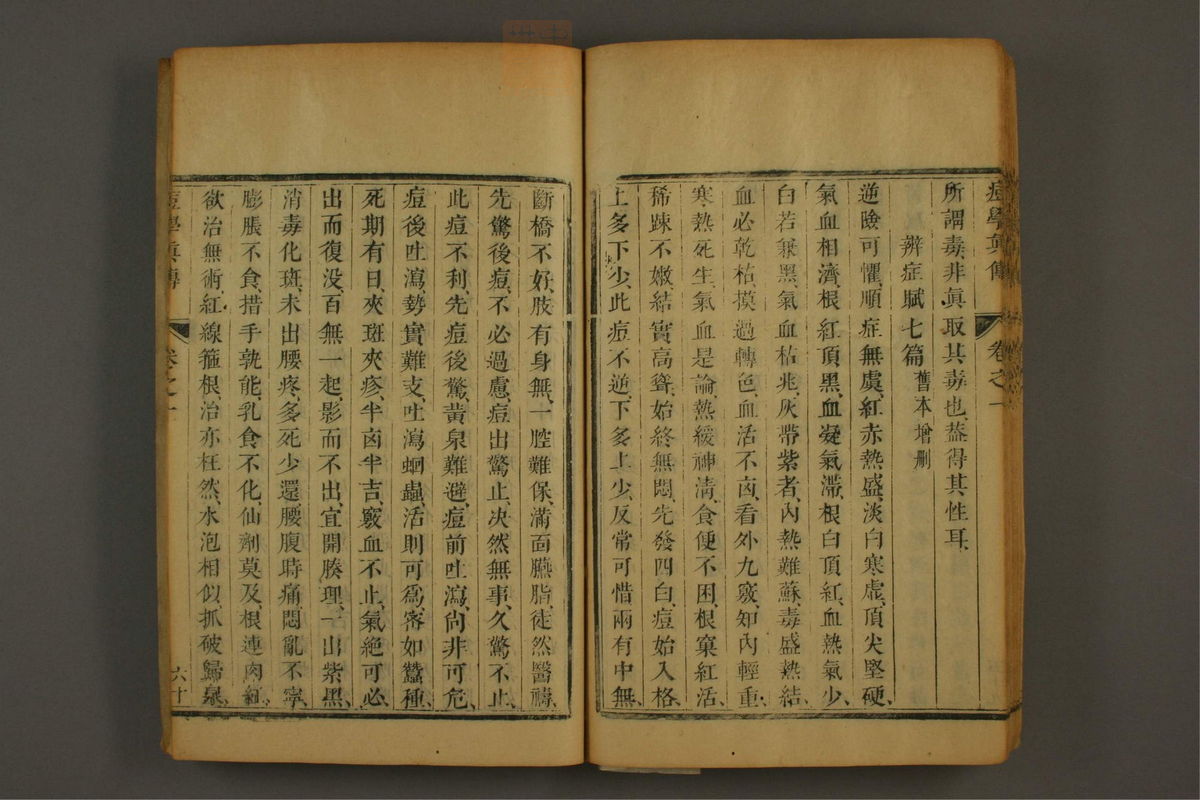 痘學眞傳 卷之一
所謂毒非眞取其毒也葢得其性耳
辨症賦七篇 舊本增刪
逆險可懼順症無虞紅赤熱盛淡白寒虛頂尖堅硬
氣血相濟根紅頂黑血凝氣滯根白頂紅血熱氣少
白若兼黑氣血枯兆灰帶紫者內熱難蘇毒盛熱結
血必乾枯摸過轉色血活不凶看外九竅知內輕重
寒熱死生氣血是論熱緩神淸食便不困根窠紅活
稀踈不嫩結實高聳始終無悶先發四白痘始入格
上多下少此痘不逆下多上少反常可惜兩有中無
斷橋不好肢有身無一腔難保滿面臙脂徒然醫禱
先驚後痘不必過慮痘出驚止决然無事久驚不止
此痘不利先痘後驚黃泉難避痘前吐瀉尙非可危
痘後吐瀉勢實難支吐瀉蛔蟲活則可爲密如蠶種
死期有日夾斑夾疹半凶半吉竅血不止氣絕可必
出而復没百無一起影而不出宜開腠理一出紫黑
消毒化斑未出腰疼多死少還腰腹時痛悶亂不寧
膨脹不食措手孰能乳食不化仙劑莫及根連肉紅
欲治無術紅線箍根治亦枉然水泡相似抓破歸泉
痘學眞傳 卷之一 六十